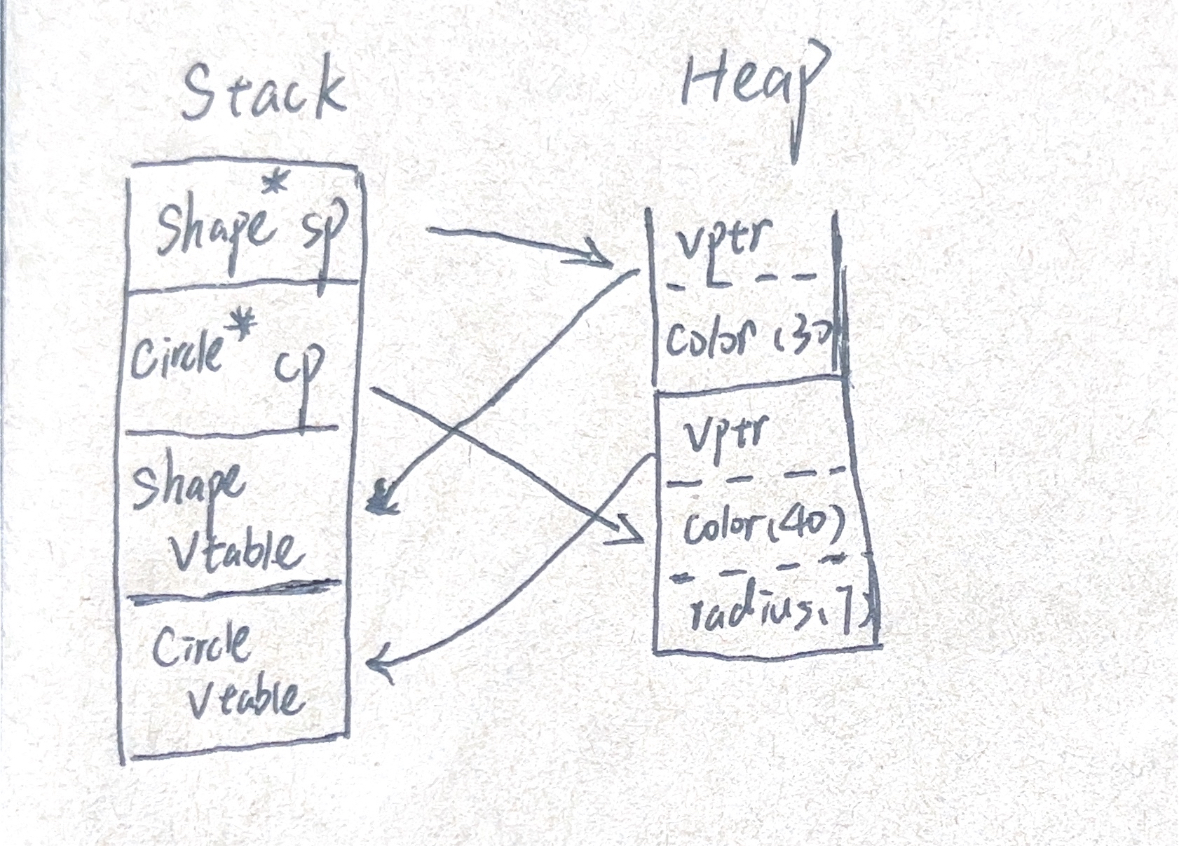 Stack
Shape* sp
Circle* cp
Shape
Vtable
Circle
Vtable
Heap
vptr
color (30)
vptr
color (40)
radius (7)